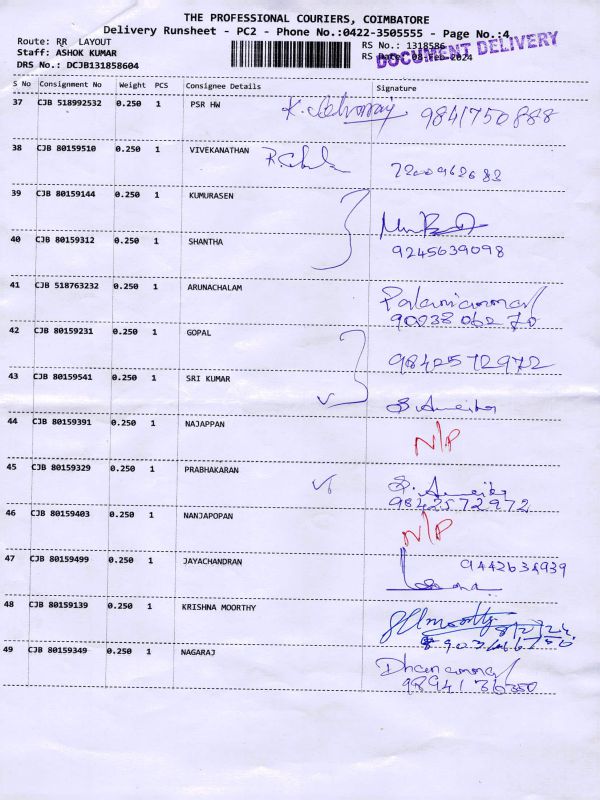 THE PROFESSIONAL COURIERS, COIMBATORE
Delivery Runsheet - PC2 - Phone No.:0422-3505555 - Page No.:4
Route: RR LAYOUT
RS No.: 1318586
DOCUMENT DELIVERY
Staff: ASHOK KUMAR
RS Date: 08-Feb-2024
DRS No.: DCJB131858604
S No Consignment No Weight PCS Consignee Details Signature
37 CJB 518992532 0.250 1 PSR HW 9841750888
38 CJB 80159510 0.250 1 VIVEKANATHAN
39 CJB 80159144 0.250 1 KUMURASEN
40 CJB 80159312 0.250 1 SHANTHA 9245639098
41 CJB 518763232 0.250 1 ARUNACHALAM Palaniammal
90038 06270
42 CJB 80159231 0.250 1 GOPAL 9842572972
43 CJB 80159541 0.250 1 SRI KUMAR
44 CJB 80159391 0.250 1 NAJAPPAN N/P
45 CJB 80159329 0.250 1 PRABHAKARAN
9842572972
46 CJB 80159403 0.250 1 NANJAPOPAN N/P
47 CJB 80159499 0.250 1 JAYACHANDRAN 9442634939
48 CJB 80159139 0.250 1 KRISHNA MOORTHY
8/2/24
49 CJB 80159349 0.250 1 NAGARAJ
98941 36350